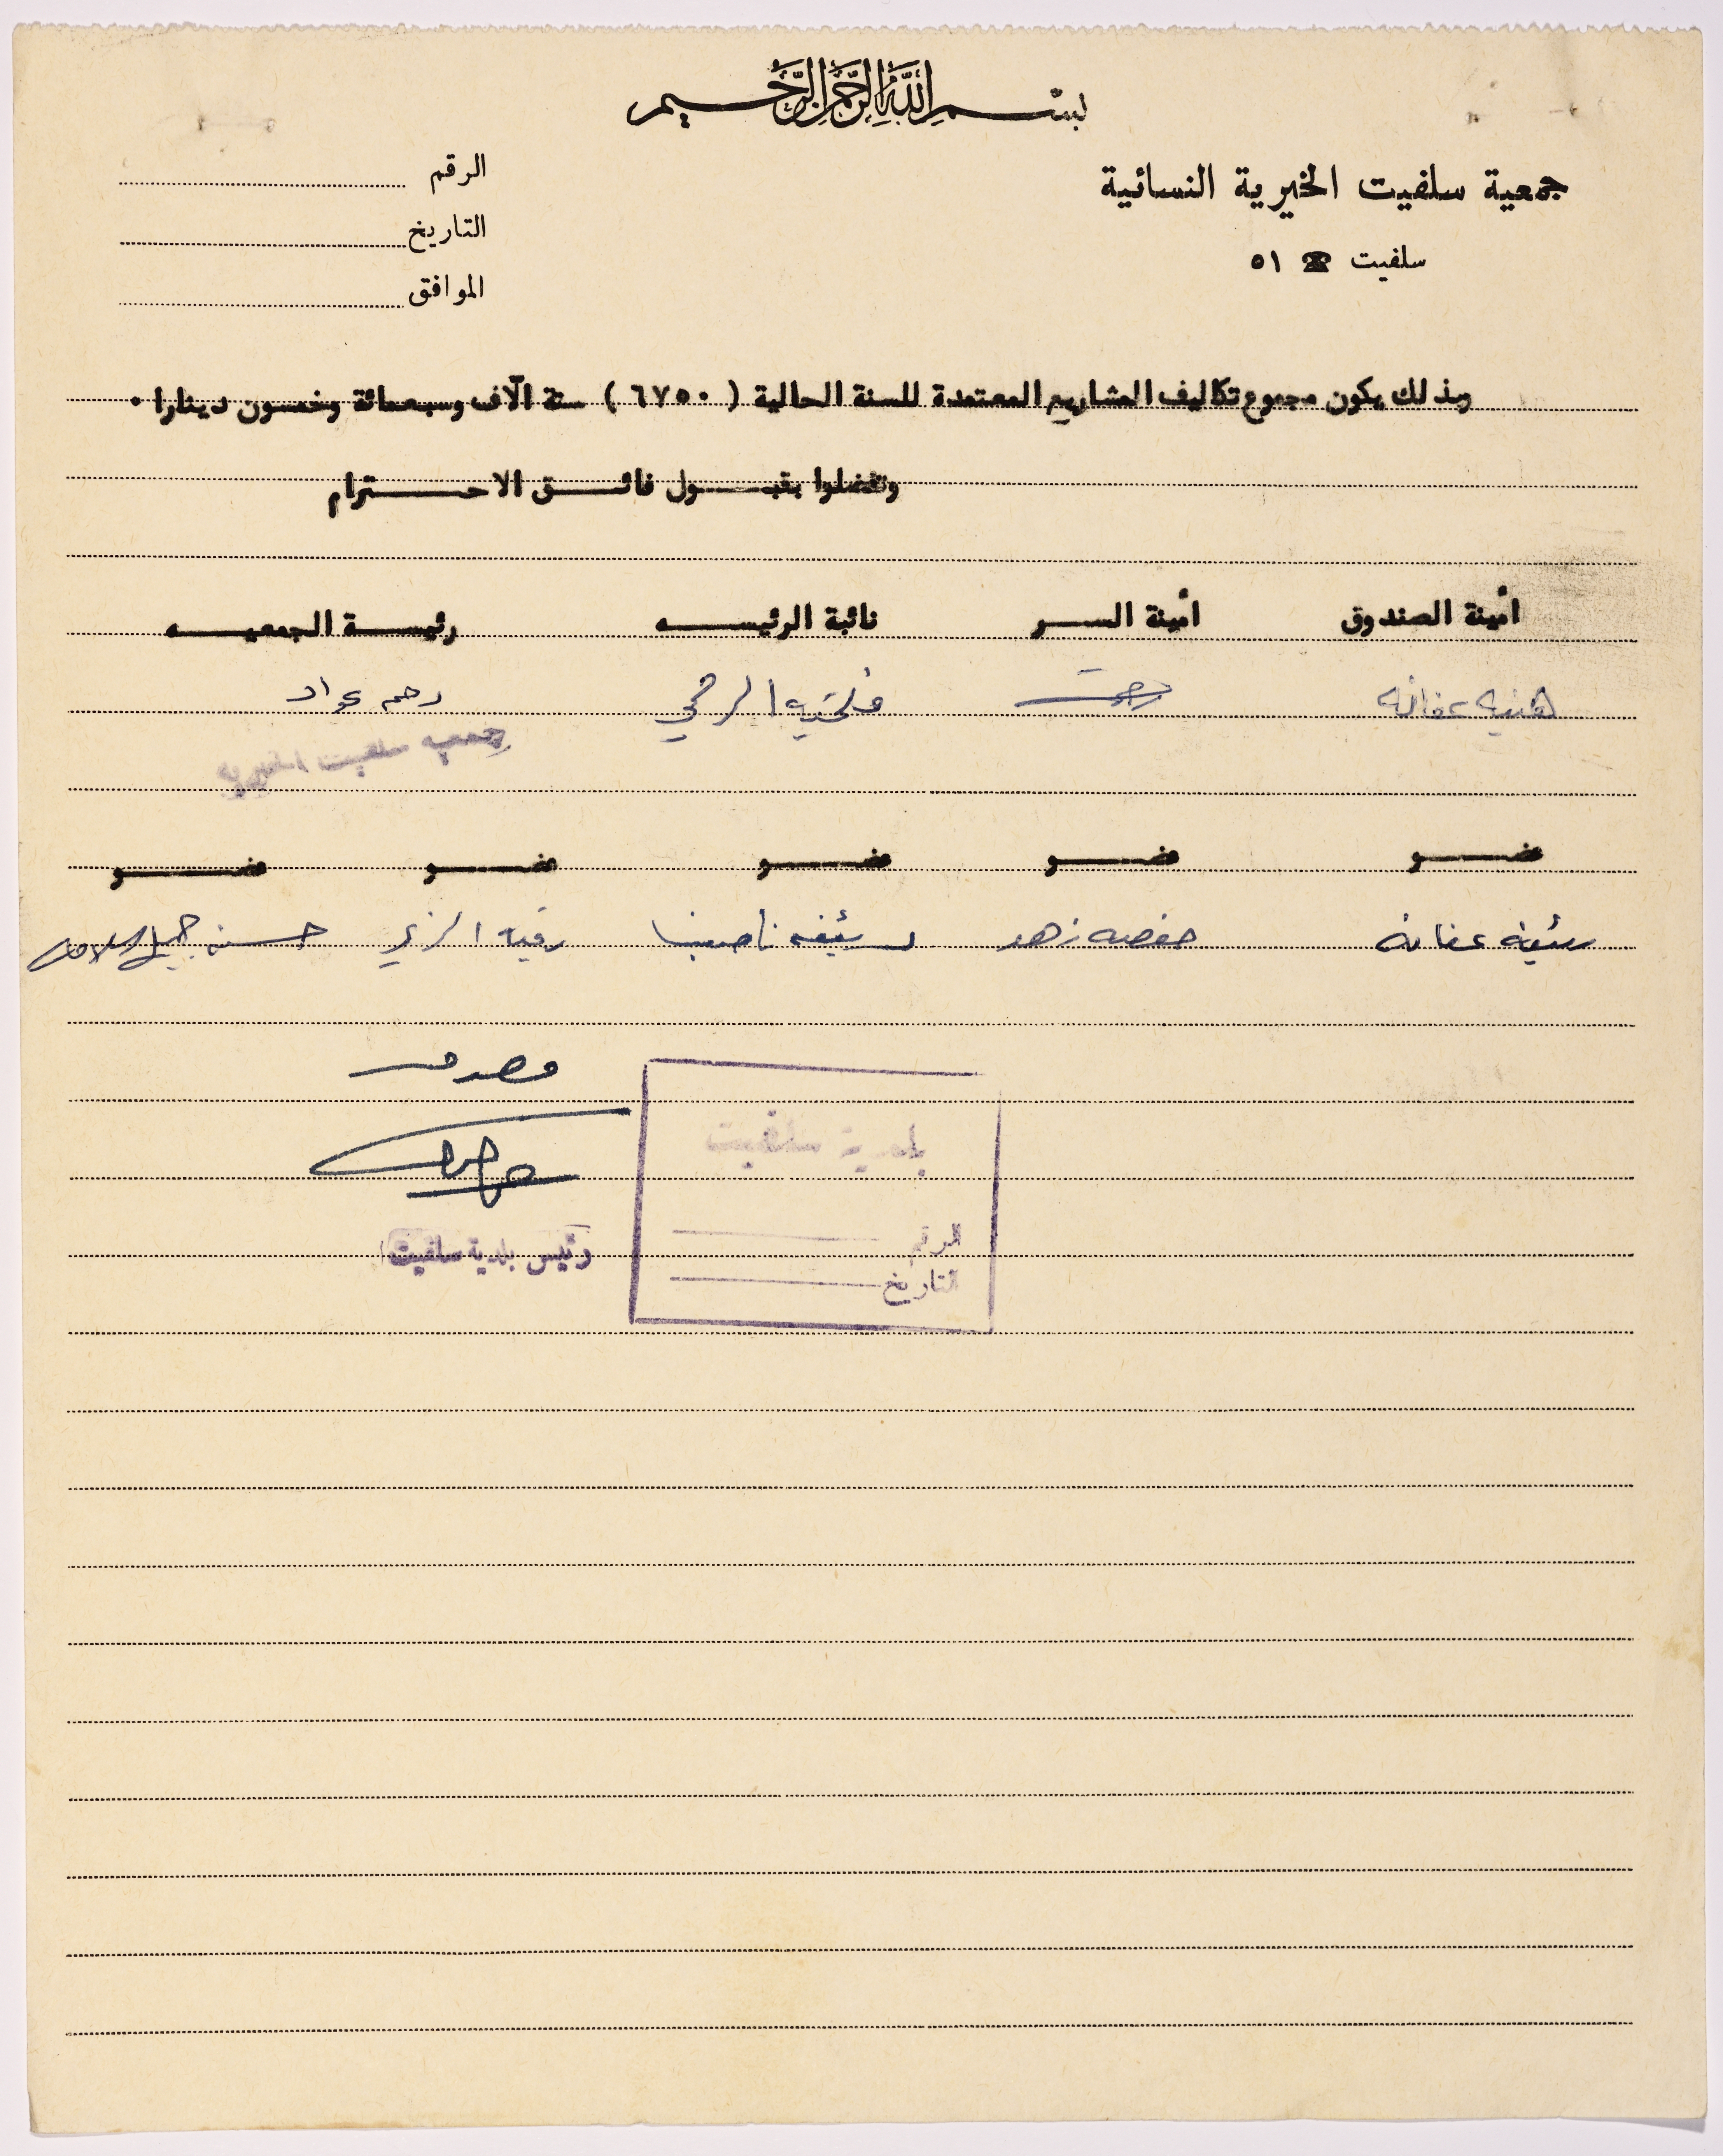 بسم الله الرحمن الرحيم
جمعية سلفيت الخيرية النسائية
سلفيت ☎ ٥١
الرقم
التاريخ
الموافق
وبذلك يكون مجموع تكاليف المشاريع المعتمدة للسنة الحالية ( ٦٧٥٠ ) ستة آلاف وسبعمائة وخمسون دينارا ٠
وتفضلوا بقبـــول فائـــق الاحـــترام
أمينة الصندوق أمينة الســـر نائبة الرئيســـه رئيســـة الجمعيـــه
هنيه عفانه فتحيه رحم عواد
جمعية سلفيت الخيرية
عضـــو عضـــو عضـــو عضـــو عضـــو
عفانه حفصه زهد رقيه حسنه جميل
مصدق
رئيس بلدية سلفيت
بلدية سلفيت
الرقم
التاريخ